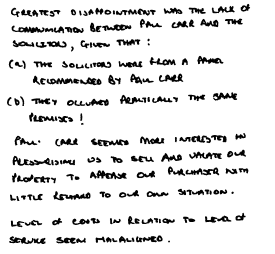 GREATEST DISAPPOINTMENT WAS THE LACK OF
COMMUNICATION BETWEEN PAUL CARR AND THE
SOLICITORS, GIVEN THAT :
(a) THE SOLICITORS WERE FROM A PANEL
RECOMMENDED BY PAUL CARR
(b) THEY OCCUPIED PRACTICALLY THE SAME
PREMISES !
PAUL CARR SEEMED MORE INTERESTED IN
PRESSURISING US TO SELL AND VACATE OUR
PROPERTY TO APPEASE OUR PURCHASER WITH
LITTLE REGARD TO OUR OWN SITUATION.
LEVEL OF COSTS IN RELATION TO LEVEL OF
SERVICE SEEM MALALIGNED.